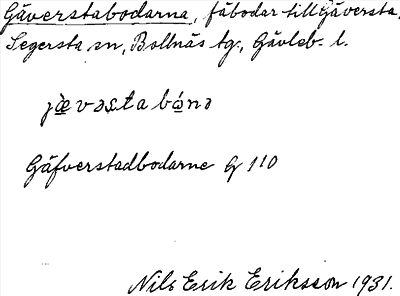 Gäverstabodarna, fäbodar till Gäversta,
Segersta sn, Bollnäs tg., Gävleb. l.
jævəsta bónə
Gäfverstadbodarne G 110
Nils Erik Eriksson 1931.